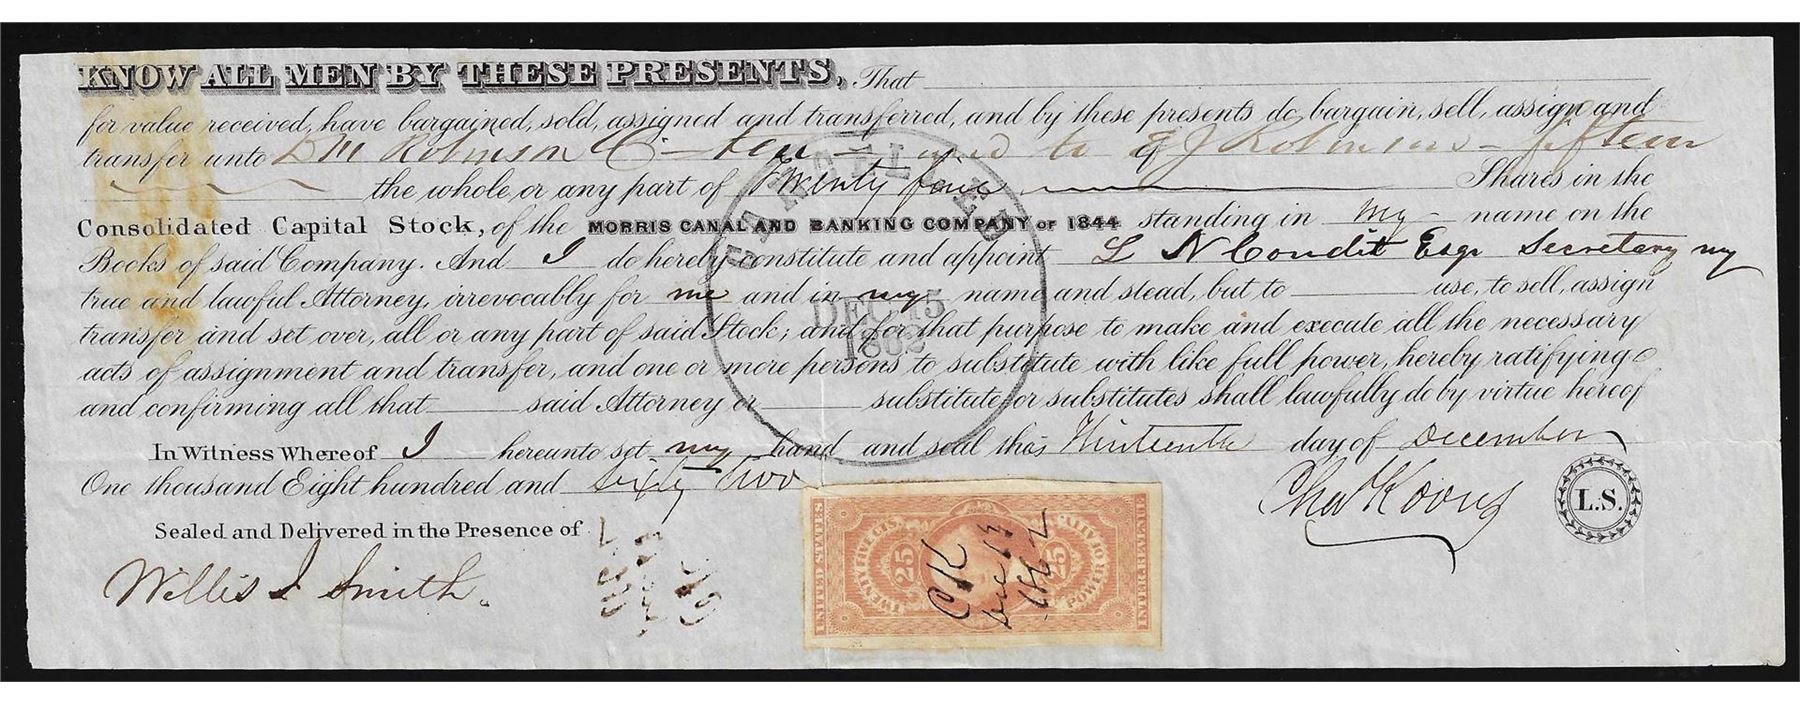 KNOW ALL MEN BY THESE PRESENTS, That
for value received, have bargained, sold, assigned and transferred, and by these presents do bargain, sell, assign and
transfer unto D M Robinson Ten and to E J Robinson fifteen
the whole or any part of Twenty five Shares in the
Consolidated Capital Stock, of the MORRIS CANAL AND BANKING COMPANY OF 1844 standing in My name on the
Books of said Company. And I do hereby constitute and appoint L N Condit Esqr Secretary my
true and lawful Attorney, irrevocably for me and in my name and stead, but to use, to sell, assign
transfer and set over, all or any part of said Stock; and for that purpose to make and execute all the necessary
acts of assignment and transfer, and one or more persons to substitute with like full power, hereby ratifying
and confirming all that said Attorney or substitute or substitutes shall lawfully do by virtue hereof
In Witness Whereof I hereunto set my hand and seal this Thirteenth day of December
One thousand Eight hundred and sixty two
Chas Koons
L.S.
Sealed and Delivered in the Presence of
Willis J Smith.
CANCELLED
DEC 15
1862
UNITED STATES
TWENTY FIVE CTS.
25
25
POWER OF AT'Y
INTER. REVENUE
CK
Dec 13
1862